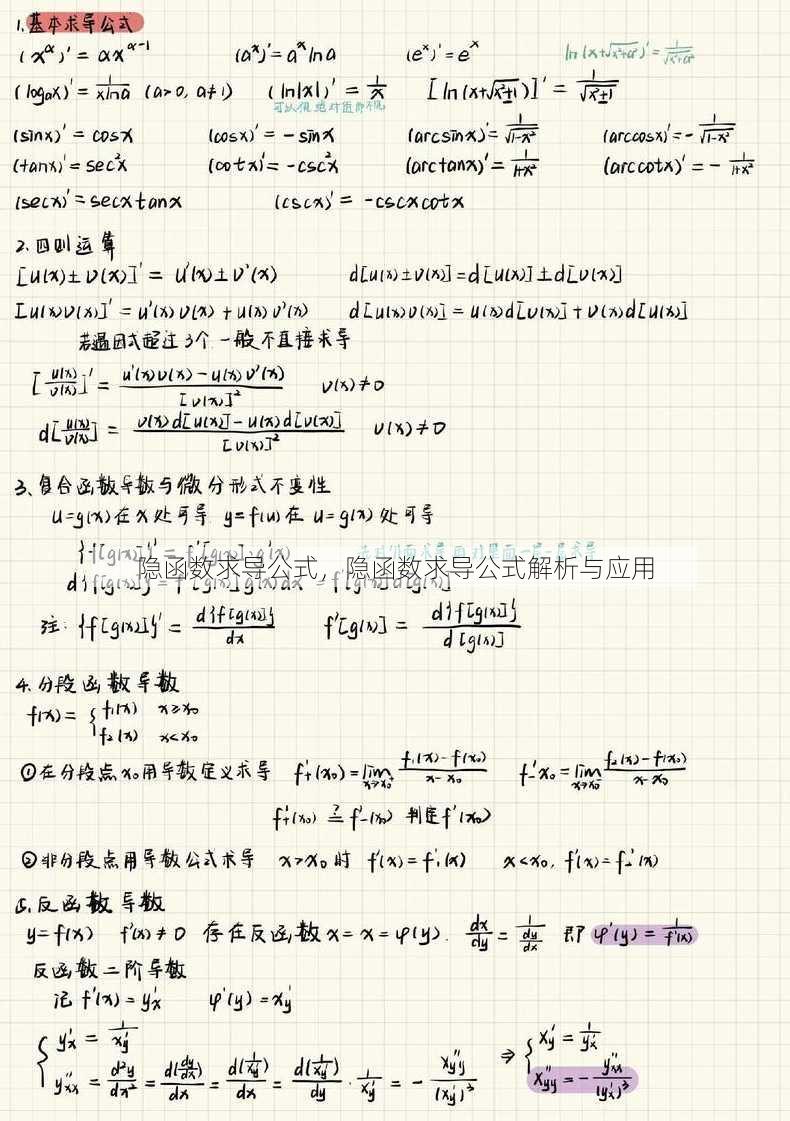 1.基本求导公式
(x^α)' = αx^(α-1) (a^x)' = a^x lna (e^x)' = e^x ln(x+√(x²+a²))' = 1/√(x²+a²)
(log_a x)' = 1/(xlna) (a>0, a≠1) (ln|x|)' = 1/x [ln(x+√(x²±1))]' = 1/√(x²±1)
(sinx)' = cosx (cosx)' = -sinx (arcsinx)' = 1/√(1-x²) (arccosx)' = -1/√(1-x²)
(tanx)' = sec²x (cotx)' = -csc²x (arctanx)' = 1/(1+x²) (arccotx)' = -1/(1+x²)
(secx)' = secxtanx (cscx)' = -cscxcotx
2.四则运算
[u(x)±v(x)]' = u'(x)±v'(x) d[u(x)±v(x)] = d[u(x)]±d[v(x)]
[u(x)v(x)]' = u'(x)v(x) + u(x)v'(x) d[u(x)v(x)] = u(x)d[v(x)] + v(x)d[u(x)]
若遇因式超过3个,一般不直接求导
[u(x)/v(x)]' = (u'(x)v(x) - u(x)v'(x))/[v(x)]² v(x)≠0
d[u(x)/v(x)] = (v(x)d[u(x)] - u(x)d[v(x)])/[v(x)]² v(x)≠0
3、复合函数导数与微分形式不变性
u=g(x)在x处可导 y=f(u)在 u=g(x)处可导
{f[g(x)]}' = f'[g(x)]g'(x)
隐函数求导公式，隐函数求导公式解析与应用
d{f[g(x)]} = f'[g(x)]g'(x)dx = f'[g(x)]d[g(x)]
注: {f[g(x)]}' = d{f[g(x)]}/dx f'[g(x)] = d{f[g(x)]}/d[g(x)]
4.分段函数导数
f(x) = { f₁(x) x≥x₀
f₂(x) x<x₀
①在分段点x₀用导数定义求导 f'₊(x₀) = lim x→x₀⁺ (f₁(x)-f(x₀))/(x-x₀) f'₋x₀ = lim x→x₀⁻ (f₂(x)-f(x₀))/(x-x₀)
f'₊(x₀) ≟ f'₋(x₀) 判定f'(x₀)
②非分段点用导数公式求导 x>x₀时 f'(x) = f'₁(x) x<x₀, f'(x) = f'₂(x)
5.反函数导数
y=f(x) f'(x)≠0 存在反函数x=x=φ(y). dx/dy = 1/(dy/dx) 即 φ'(y) = 1/f'(x)
反函数二阶导数
记 f'(x) = y'ₓ φ'(y) = x'_y
{ y'ₓ = 1/x'_y
y''ₓₓ = d²y/dx² = d(dy/dx)/dx = d(1/x'_y)/dx = d(1/x'_y)/dy · 1/x'_y = -x''_yy/(x'_y)³ ⇒ { x'_y = 1/y'ₓ
x''_yy = -y''ₓₓ/(y'ₓ)³